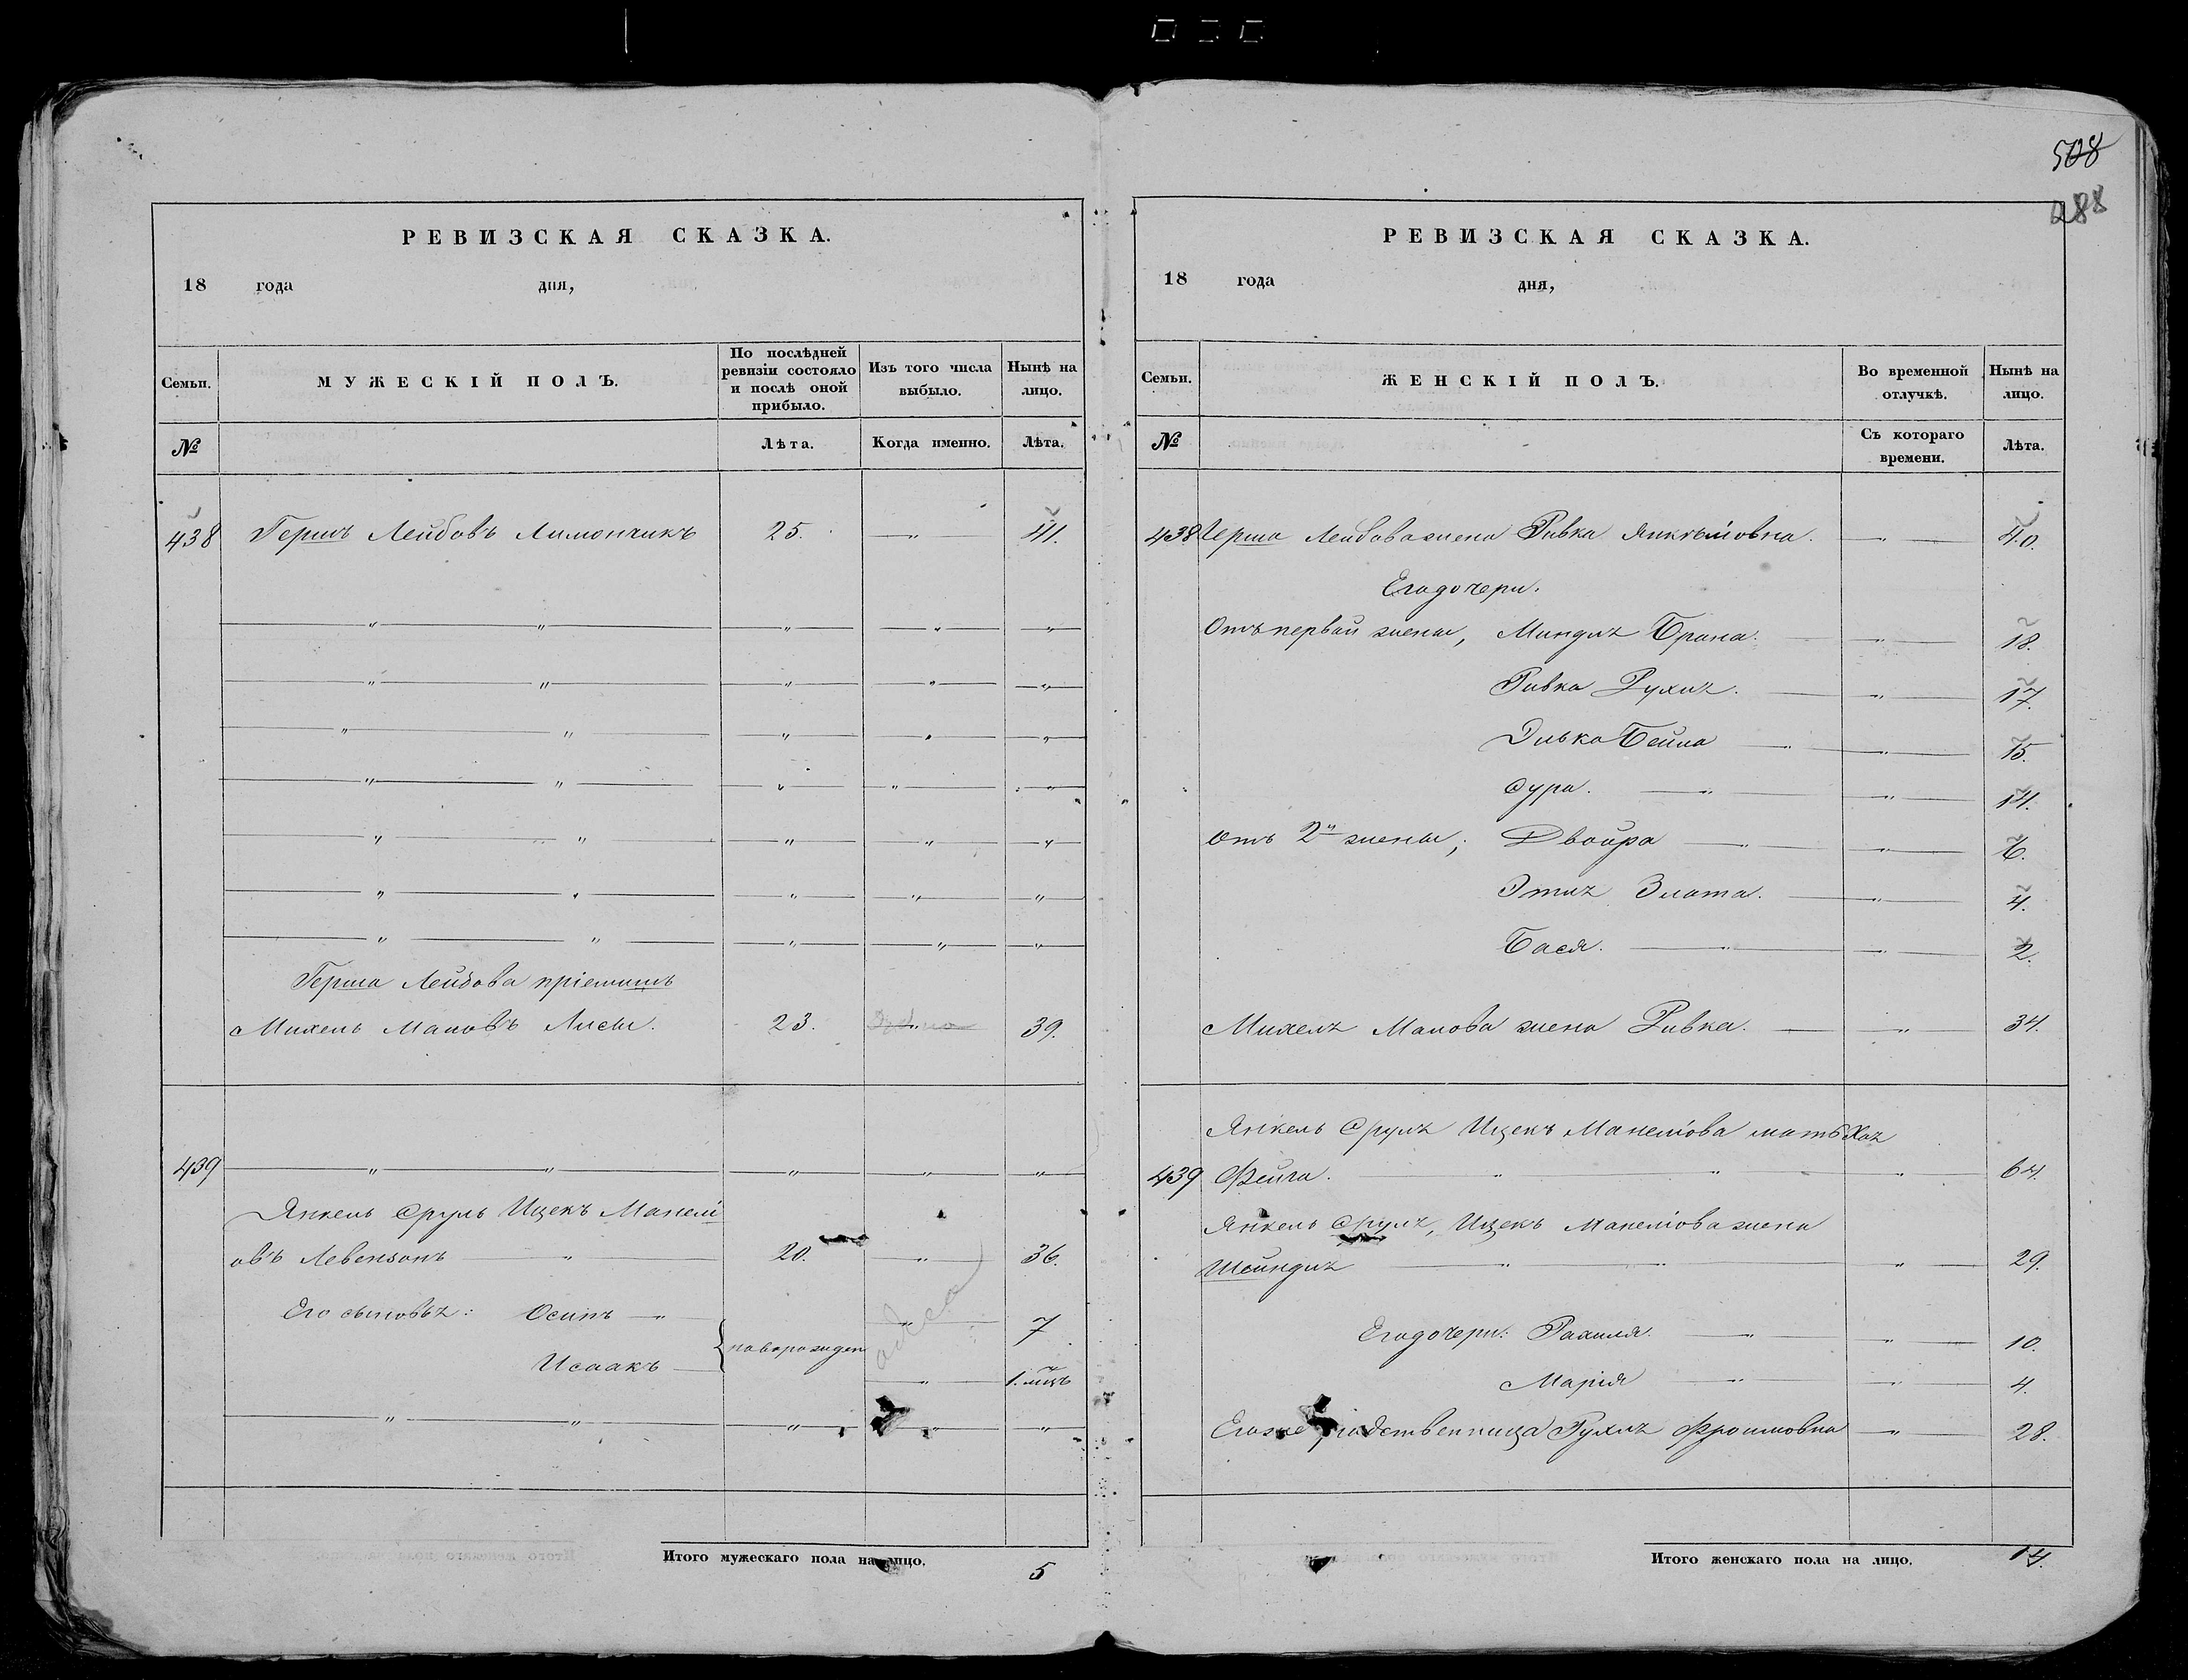 508
288
РЕВИЗСКАЯ СКАЗКА.
18 года дня,
Семьи. МУЖЕСКІЙ ПОЛЪ. По послѣдней ревизіи состояло и послѣ оной прибыло. Изъ того числа выбыло. Нынѣ на лицо.
№ Лѣта. Когда именно. Лѣта.
438 Гершъ Лейбовъ Лимончикъ 25. — " — 41.
Герша Лейбова пріемышъ
Михель Мановъ Лисы. 23. 39.
439
Янкель Сруль Ицекъ Манелі
овъ Левензонъ 20. — " — 36.
Его сыновья: Осипъ — " — 7
новорожден
Исаакъ — " — 1. мцъ
Итого мужескаго пола на лицо. 5
РЕВИЗСКАЯ СКАЗКА.
18 года дня,
Семьи. ЖЕНСКІЙ ПОЛЪ. Во временной отлучкѣ. Нынѣ на лицо.
№ Съ котораго времени. Лѣта.
438 Герша Лейбова жена Ривка Янкелiовна. — " — 40.
Его дочери.
Отъ первой жены, Миндля Брана. — " — 18.
Ривка Рухля. — " — 17.
Элька Бейла — " — 15.
Сура. — " — 14.
Отъ 2й жены; Двойра — " — 6.
Этля Злата. — " — 4.
Бася. — " — 2.
Михеля Манова жена Ривка. — " — 34.
Янкель Сруля Ицекъ Манеліова мать Хая
439 Фейга. — " — 64.
Янкель Сруля, Ицекъ Манеліова жена
Шейндля — " — 29.
Его дочери: Рахиля. — " — 10.
Марія — " — 4.
Егоже родственница Рухля Фроимовна — " — 28.
Итого женскаго пола на лицо. 14.